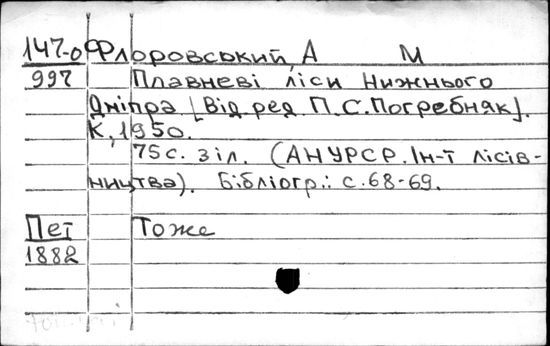 147-о Флоровський, А М
997 Плавневі ліси Нижнього
Дніпра [Від ред П.С.Погребняк].
К, 1950.
75с. з іл. (АНУРСР. Ін-т лісів-
ництва). Бібліогр.: с.68-69.
Пет Тоже
1882